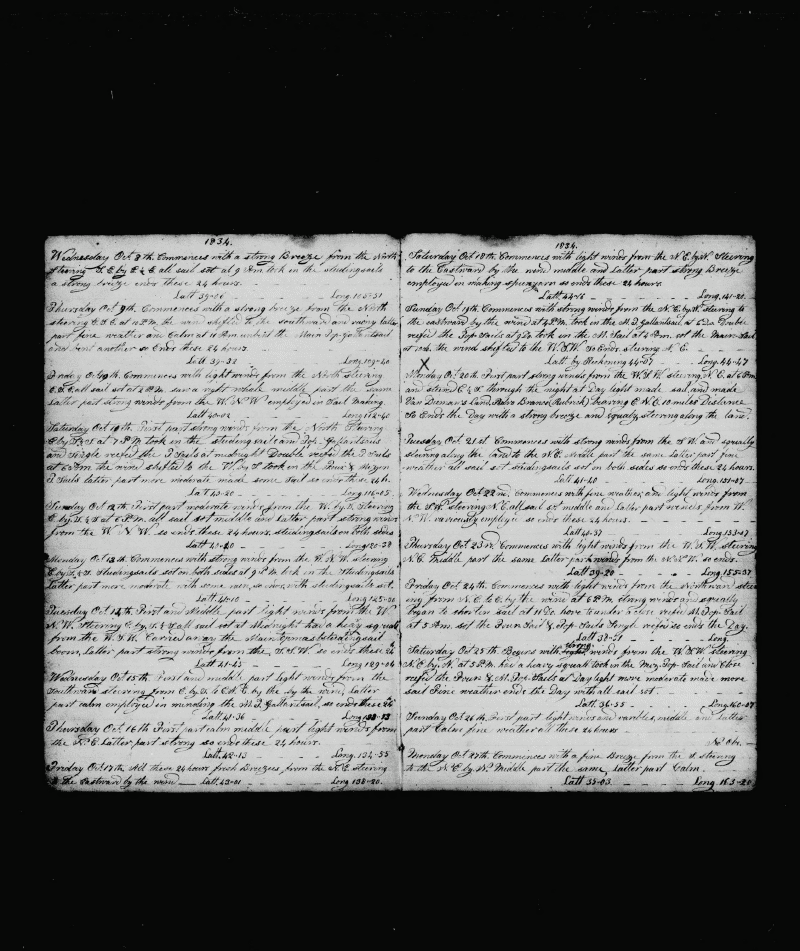 1834.
Wednesday Oct 8th Commences with a strong Breeze from the North
Steering S. E by E ½ E all sail set at 9 P.m took in the studingsails
a strong breeze ends these 24 hours.
Latt 39-06 Long 105-31
Thursday Oct 9th Commences with a strong breeze from the North
steering E.S.E. at 11 P.M. the wind shifted to the southward and latter
part fine weather and Calm at 11 Am unbent the Main Top Ga. Sail
and bent another so Ends these 24 hours.
Latt 39-33 Long 109-40
Friday Oct Commences with light winds from the North steering
E.S.E. all sail set at 5 P.M. saw a right whale middle part the same
Latter part strong winds from the W.N.W employed in Sail Making.
Latt 40-02 Long 112-40
Saturday Oct First part strong winds from the North Steering
E by S at 7 P.M took in the studing sails and Top Gallantsails
and Single reefed the T Sails at midnight Double reefed the T Sails
at 6 Am the wind shifted to the W. by S took in the Four & Mizen
T Sails latter part more moderate made some Sail so ends these 24 h.
Latt 40-20 Long 116-05
Sunday Oct 12th First part moderate winds from the W. by S. Steering
E. by S. at 6 P.M. all sail set middle and Latter part strong winds
from the W N W. so ends these 24 hours, studingsails on both sides
Latt 41-20 Long 120-28
Monday Oct 13th Commences with strong winds from the W. N. W. steering
E by S. Studingsails set on both sides at 9 P.M. took in the Studingsails
Latter part more moderate with some rain, so ends with studingsails set.
Latt. 41-10 Long 125-00
Tuesday Oct 14th First and Middle part light winds from the W
N. W. Steering E. by S. all sail set at Midnight had a heavy squall
from the W.S.W. Carried away the Maintopmast studingsail
boom, Latter part strong winds from the S.S.W. so ends these 24
Latt 41-45 Long 129-06
Wednesday Oct 15th First and middle part light winds from the
Southward steering from E. by S. to E.N.E. by the wind, Latter
part calm employed in mending the M. T. Gallantsail, so ends these 24
Latt 41-36 Long 133-13
Thursday Oct 16th First and middle part light winds from
the N.E. Latter part strong so ends these 24 hours.
Latt. 42-13 Long. 134-55
Friday Oct 17th All these 24 hours fresh Breezes from the N.E. Steering
to the Eastward by the wind Latt 43-01 Long 138-20.
1834.
Saturday Oct 18th Commences with light winds from the N. E. by N. Steering
to the Eastward by the wind middle and Latter part strong Breeze
employed in making spunyarn so ends these 24 hours.
Latt 44-16 Long. 141-20
Sunday Oct 19th Commences with strong winds from the N. E. by N. steering to
the eastward by the wind at 4 P.M. took in the M. T. Gallantsail, at 6 Do. Double
reefed the Top Sails at 9 Do. took in the M. Sail at 4 Am. set the Main Sail
at 10 h. the wind shifted to the W.S.W. So Ends steering N. E.
Latt. by Reckoning 44-37 Long. 44-47
X
Monday Oct. 20th First part strong winds from the W.S.W. Steering N.E. at 6 P.m
and steered E. ½ S through the night at Day light made sail, and made
Van Demans Land, Pedro Branca (Rubrick) bearing E.N.E. 10 miles Distance
So Ends the Day with a strong breeze and squaly steering along the land.
Tuesday Oct. 21st Commences with strong winds from the S.W. and squaly
steering along the land to the N.E. Middle part the same latter part fine
weather all sail set studingsails set on both sides so ends these 24 hours.
Latt. 41-40 Long. 151-07
Wednesday Oct 22nd Commences with fine weather, and light winds from
the S.W. steering N.E. all sail set middle and latter part winds from W.
N. W. variously employed so ends these 24 hours.
Latt 41-37 Long. 153-47
Thursday Oct 23rd Commences with light winds from the W.S.W. steering
N.E. Middle part the same Latter part winds from the N.N.W. so ends.
Latt 39-20 Long. 155-37
Friday Oct 24th Commences with light winds from the Northward steer
ing from N.E. to E. by the wind at 6 P.M. strong winds and squaly
began to shorten sail at 11 Do. hove to under a close reefed M. Top Sail
at 5 A.m. set the Four Sail & Top Sails Single reefed so ends the Day.
Latt 38-21 Long
Saturday Oct 25th Begins with strong winds from the W.S.W. steering
N.E. by N. at 5 P.M. had a heavy squall took in the Miz. Top Sail and Close
reefed the Four & M. Top Sails at Daylight more moderate made more
sail Fine weather ends the Day with all sail set.
Latt. 36-55 Long 160-07
Sunday Oct 26th First part light winds and variables, middle and Latter
part Calm fine weather all these 24 hours.
No Obs.
Monday Oct 27th Commences with a fine Breeze from the steering
to the N. E. by N. Middle part the same, Latter part Calm.
Latt 35-03 Long. 163-20